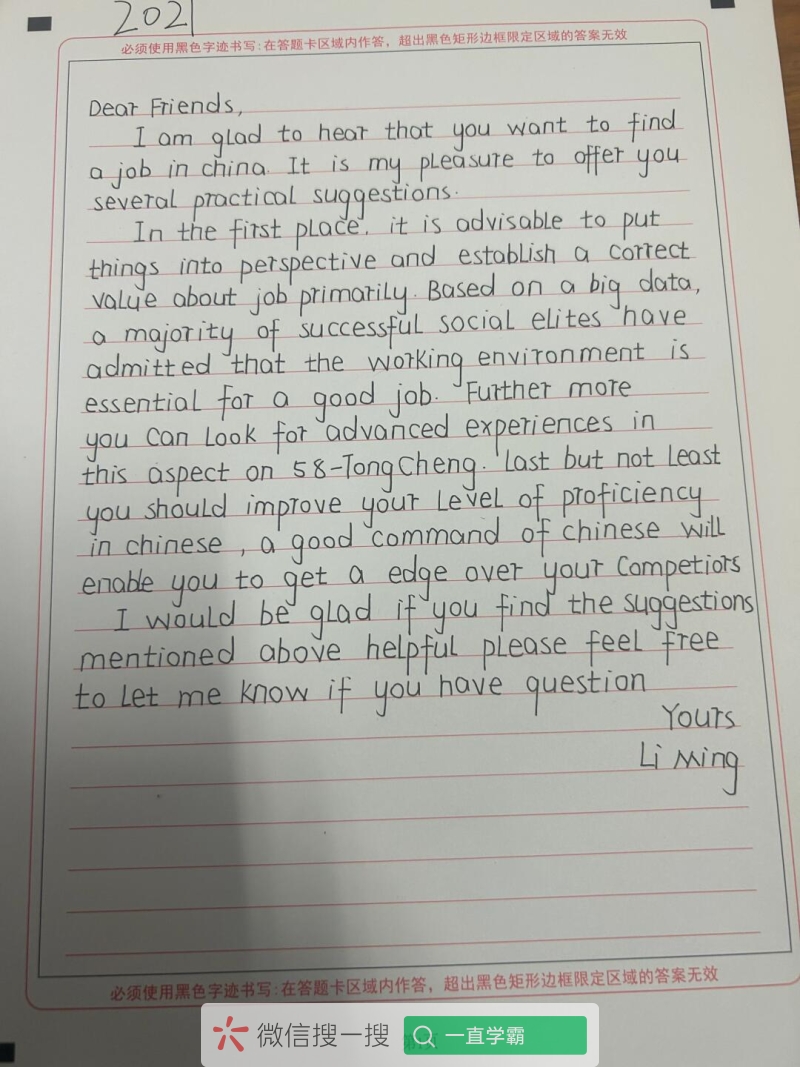 2021
必须使用黑色字迹书写:在答题卡区域内作答，超出黑色矩形边框限定区域的答案无效
Dear Friends,
I am glad to hear that you want to find
a job in china. It is my pleasure to offer you
several practical suggestions.
In the first place, it is advisable to put
things into perspective and establish a correct
value about job primarily. Based on a big data,
a majority of successful social elites have
admitted that the working environment is
essential for a good job. Further more
you can look for advanced experiences in
this aspect on 58-TongCheng. Last but not least
you should improve your level of proficiency
in chinese, a good command of chinese will
enable you to get a edge over your Competiors
I would be glad if you find the suggestions
mentioned above helpful please feel free
to let me know if you have question
Yours
Li Ming
必须使用黑色字迹书写:在答题卡区域内作答，超出黑色矩形边框限定区域的答案无效
微信搜一搜
一直学霸